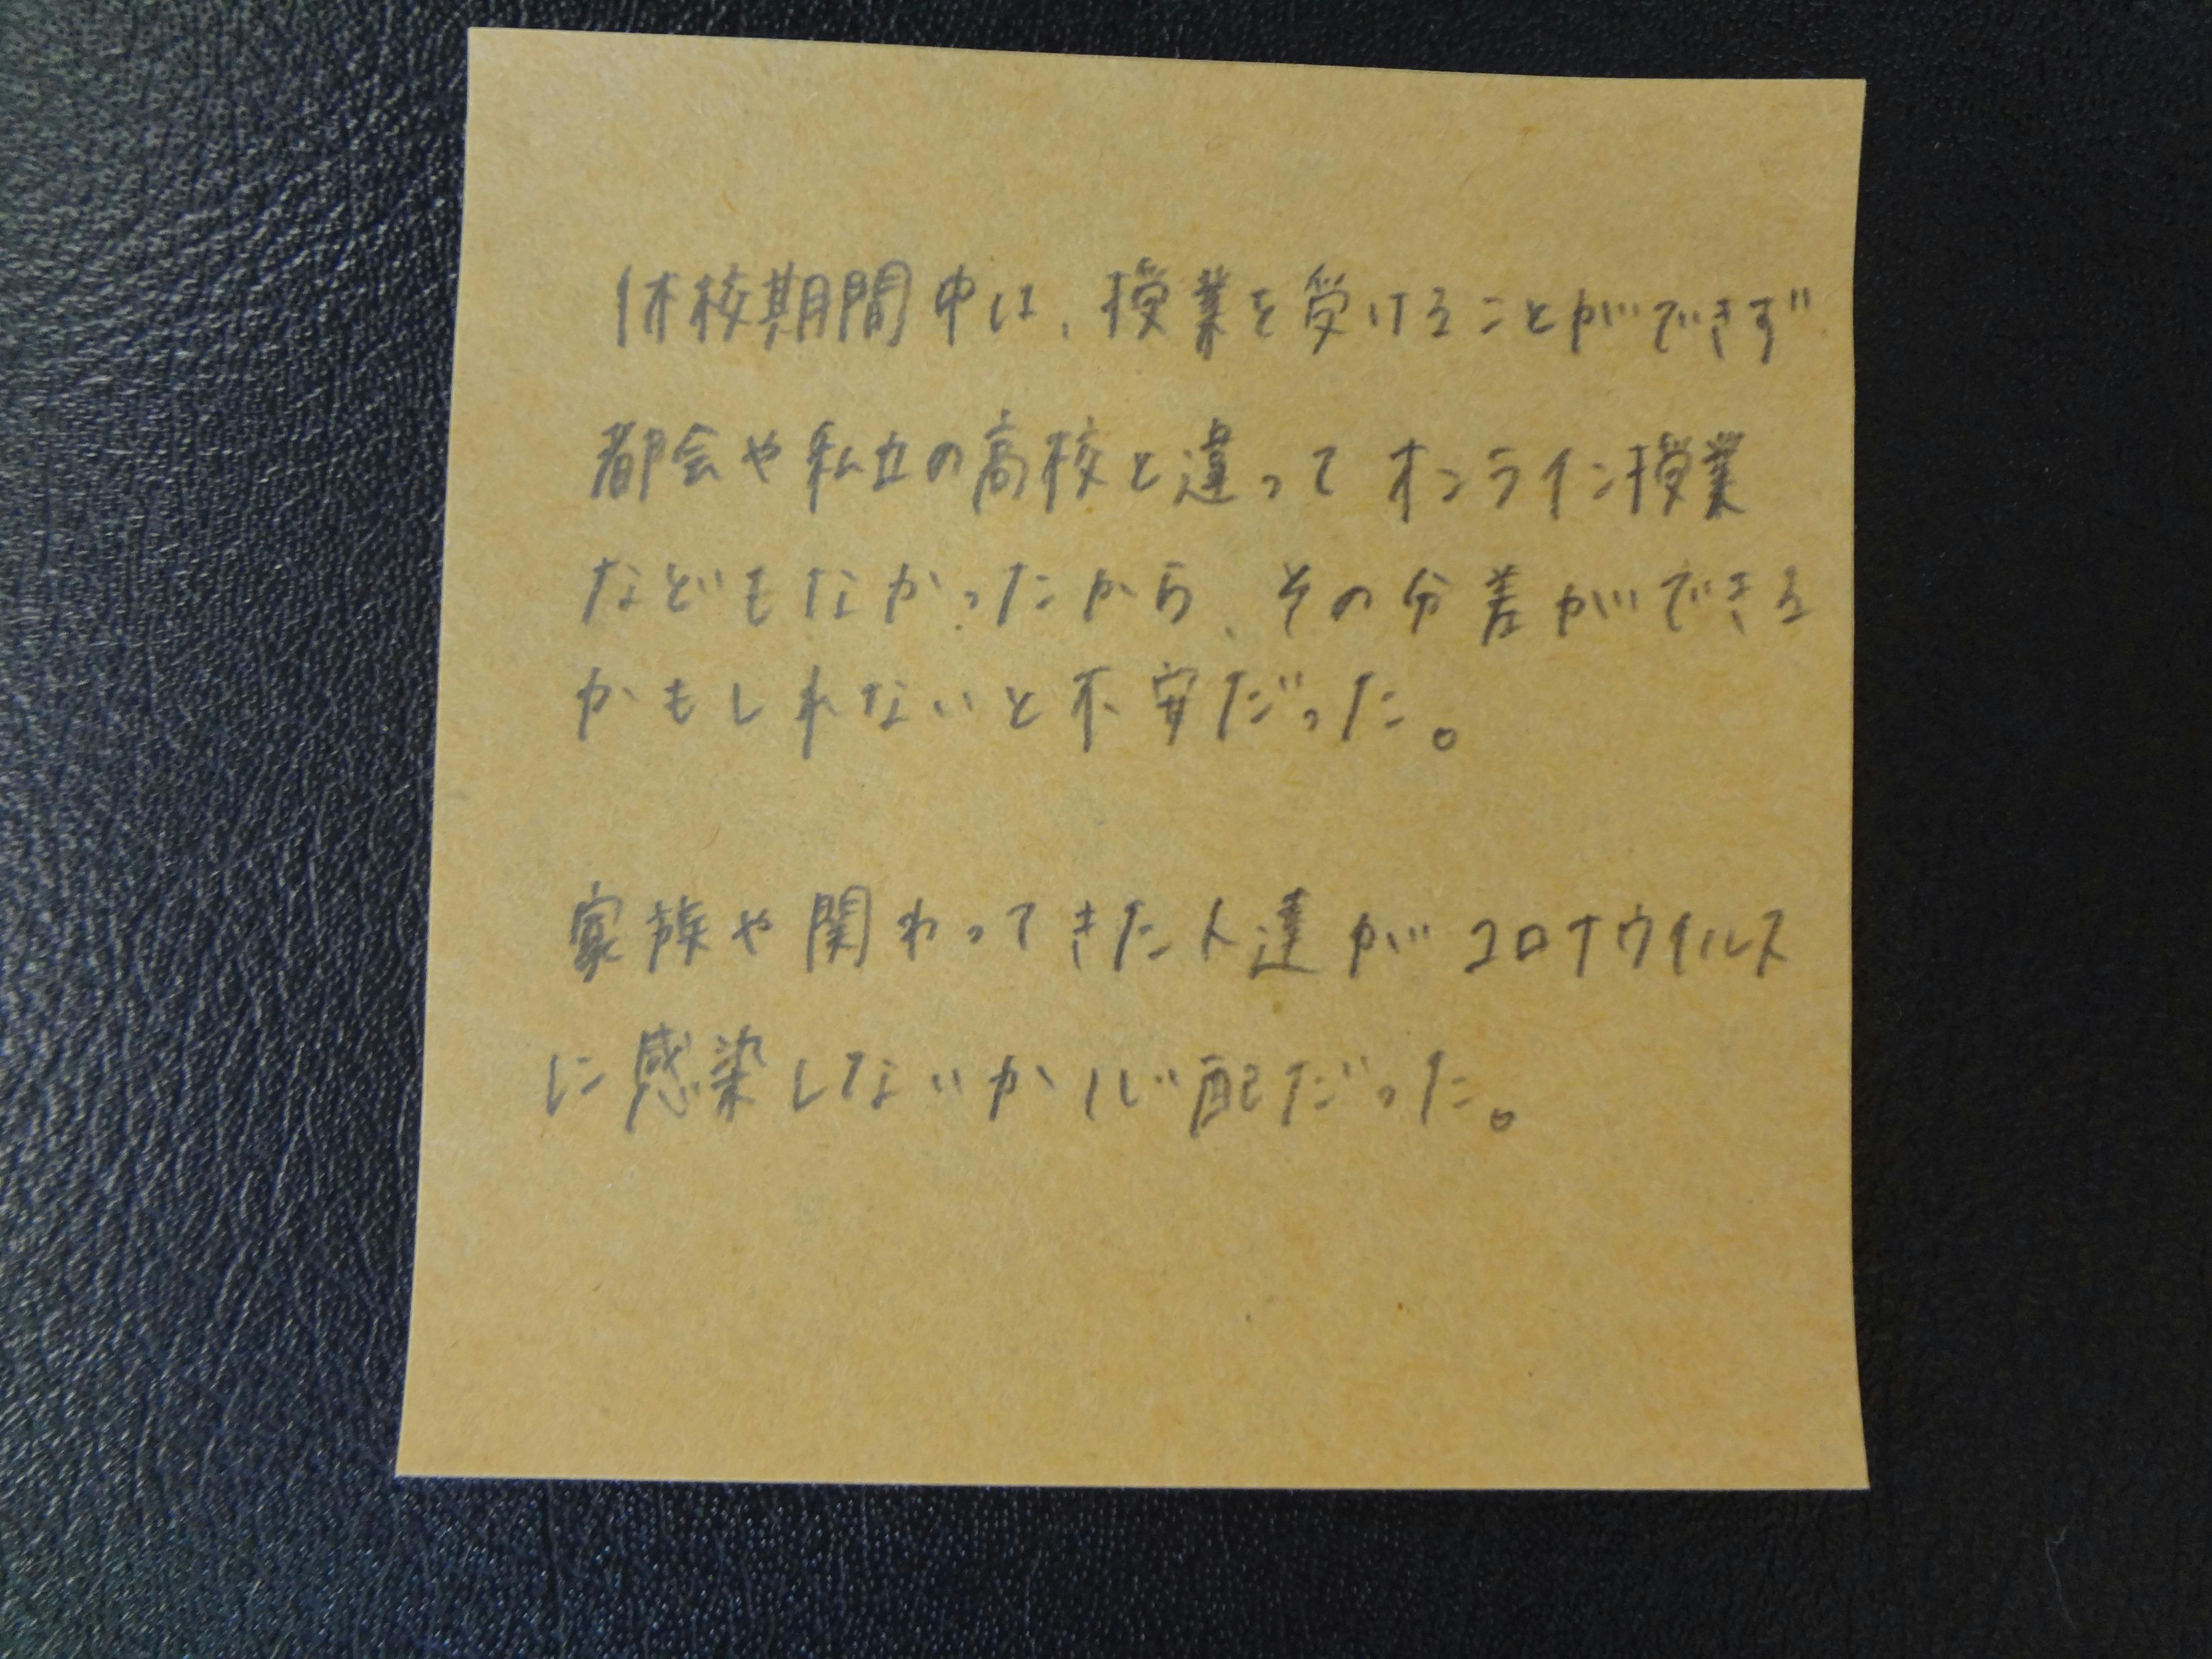 休校期間中は、授業を受けることができず
都会や私立の高校と違ってオンライン授業
などもなかったから、その分差ができる
かもしれないと不安だった。
家族や関わってきた人達がコロナウイルス
に感染しないか心配だった。